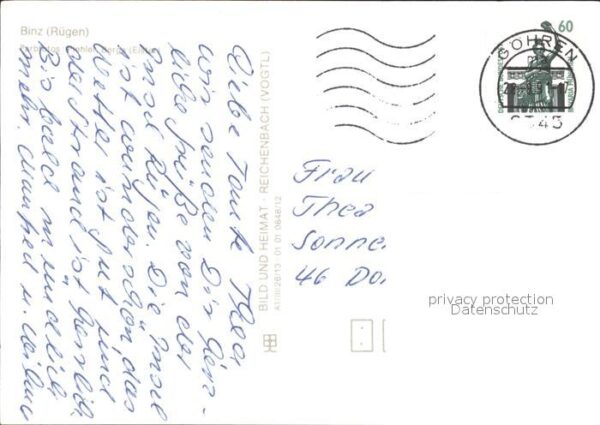 Binz (Rügen)
Liebe Tante Thea
wir senden Dir herz-
liebe Grüße von der
Insel Rügen. Die Insel
ist wunderschön, das
Wetter ist gut und
der Strand ist herrlich
Bis bald mündlich
mehr. Manfred u.
BILD UND HEIMAT · REICHENBACH (VOGTL)
A1/III/26/13 01 01 0648/12
60
GÖHREN
2345
Frau
Thea
Sonne
46 Do
privacy protection
Datenschutz